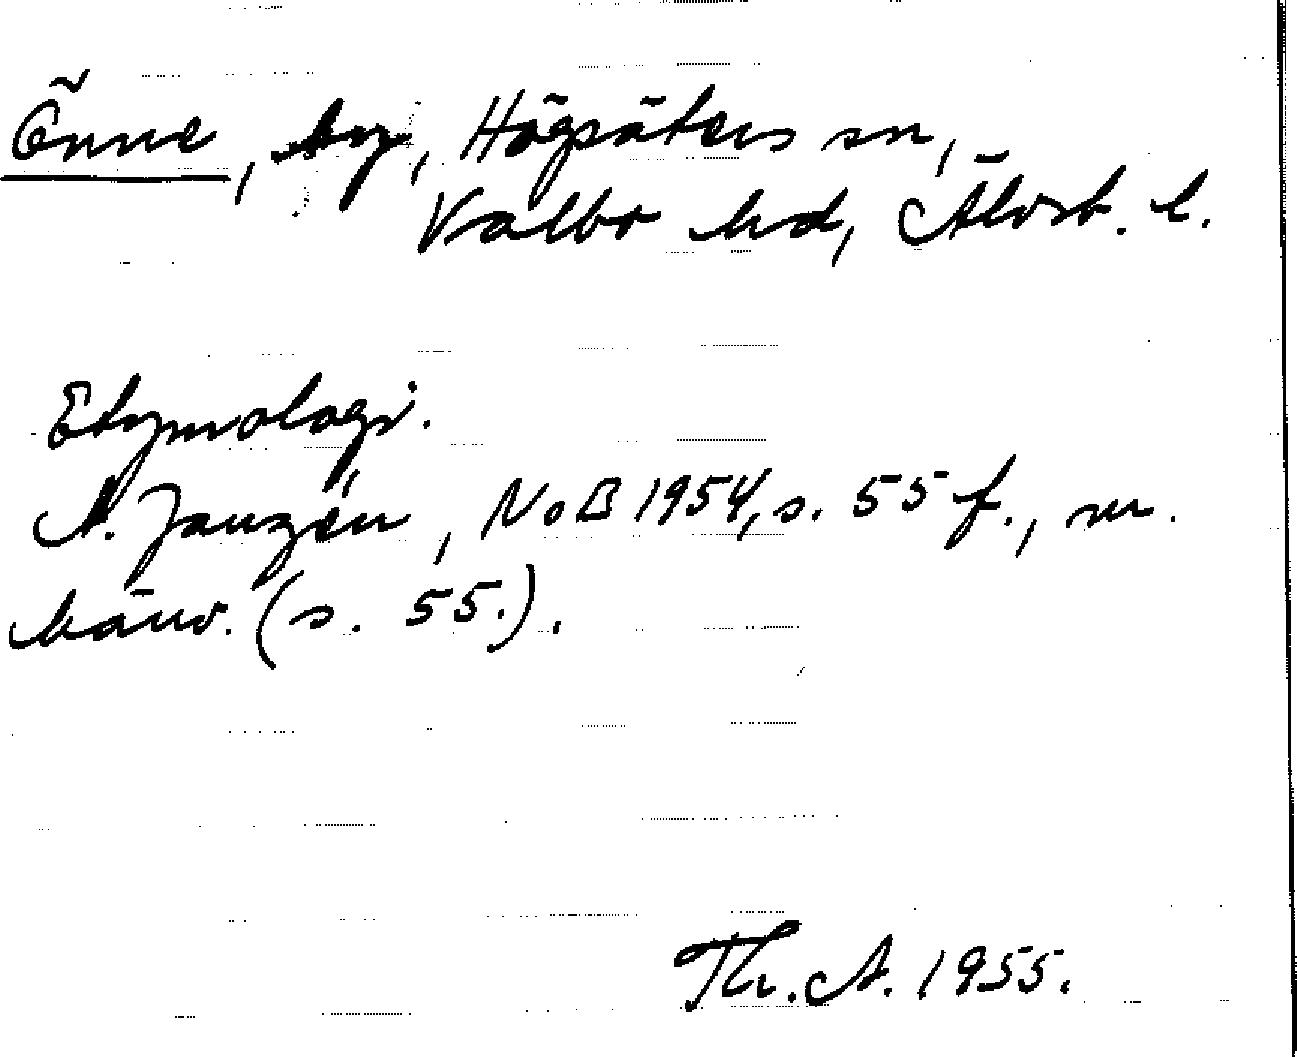 Önne, by, Högsäters sn,
Valbo hd, Älvsb. l.
Etymologi.
A. Janzén, NoB 1954, s. 55 f., m.
hänv. (s. 55.).
Th. A. 1955.